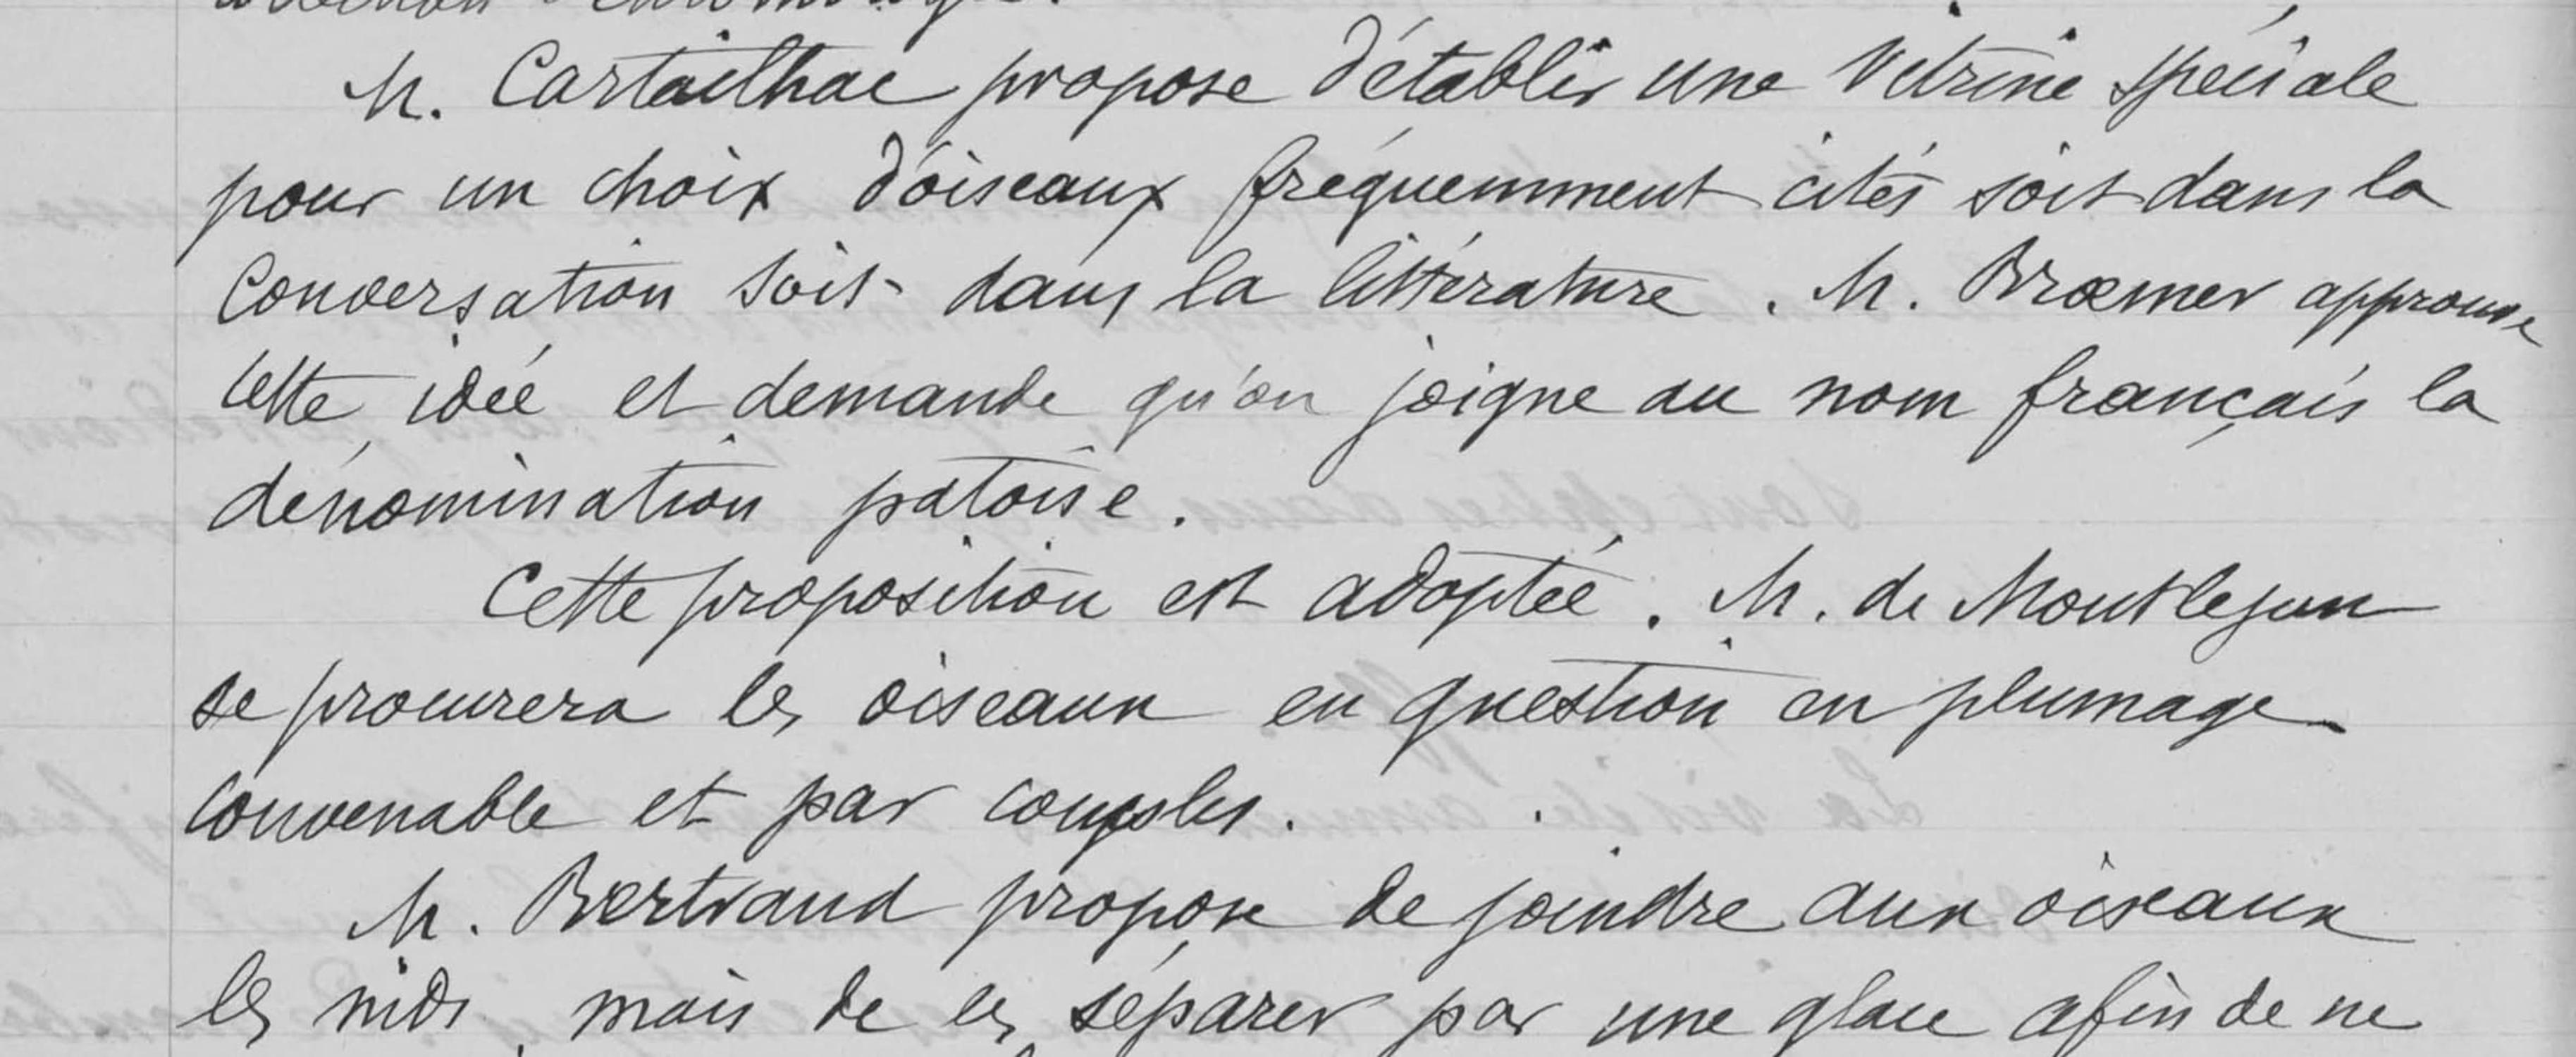 M. Cartailhac propose d'établir une vitrine spéciale
pour un choix d'oiseaux fréquemment cités soit dans la
Conversation soit dans la littérature. M. Bræmer approuve
cette idée et demande qu'on joigne au nom français la
dénomination patoise.
Cette proposition est adoptée. M. de Montlezun
se procurera les oiseaux en question en plumage
convenable et par couples.
M. Bertrand propose de joindre aux oiseaux
les nids, mais de les séparer par une glace afin de ne